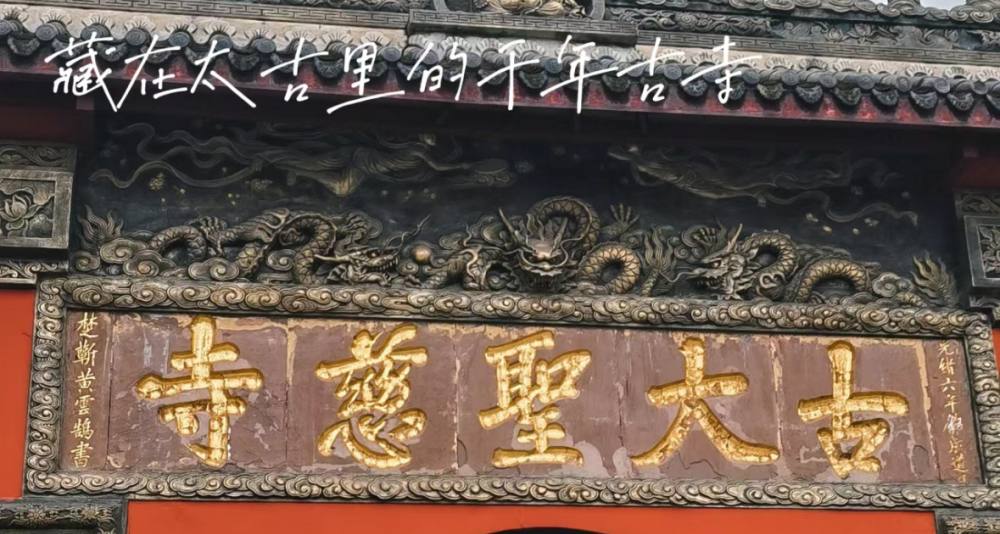 藏在太古里的千年古寺
古大聖慈寺
光緒六年
楚蘄黄雲鵠書